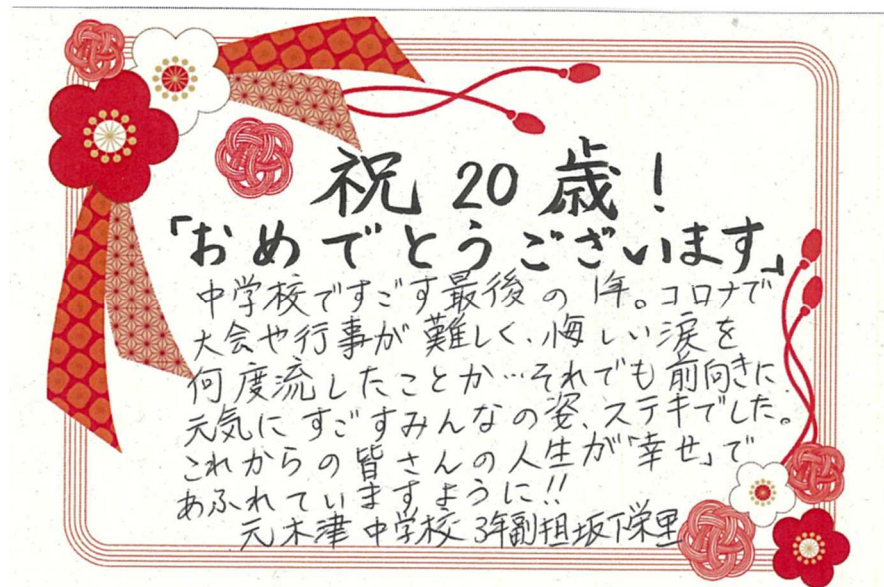 祝20歳!
「おめでとうございます」
中学校ですごす最後の1年。コロナで
大会や行事が難しく、悔しい涙を
何度流したことか…それでも前向きに
元気にすごすみんなの姿、ステキでした。
これからの皆さんの人生が「幸せ」で
あふれていますように!!
元木津中学校 3年副担坂下栄里